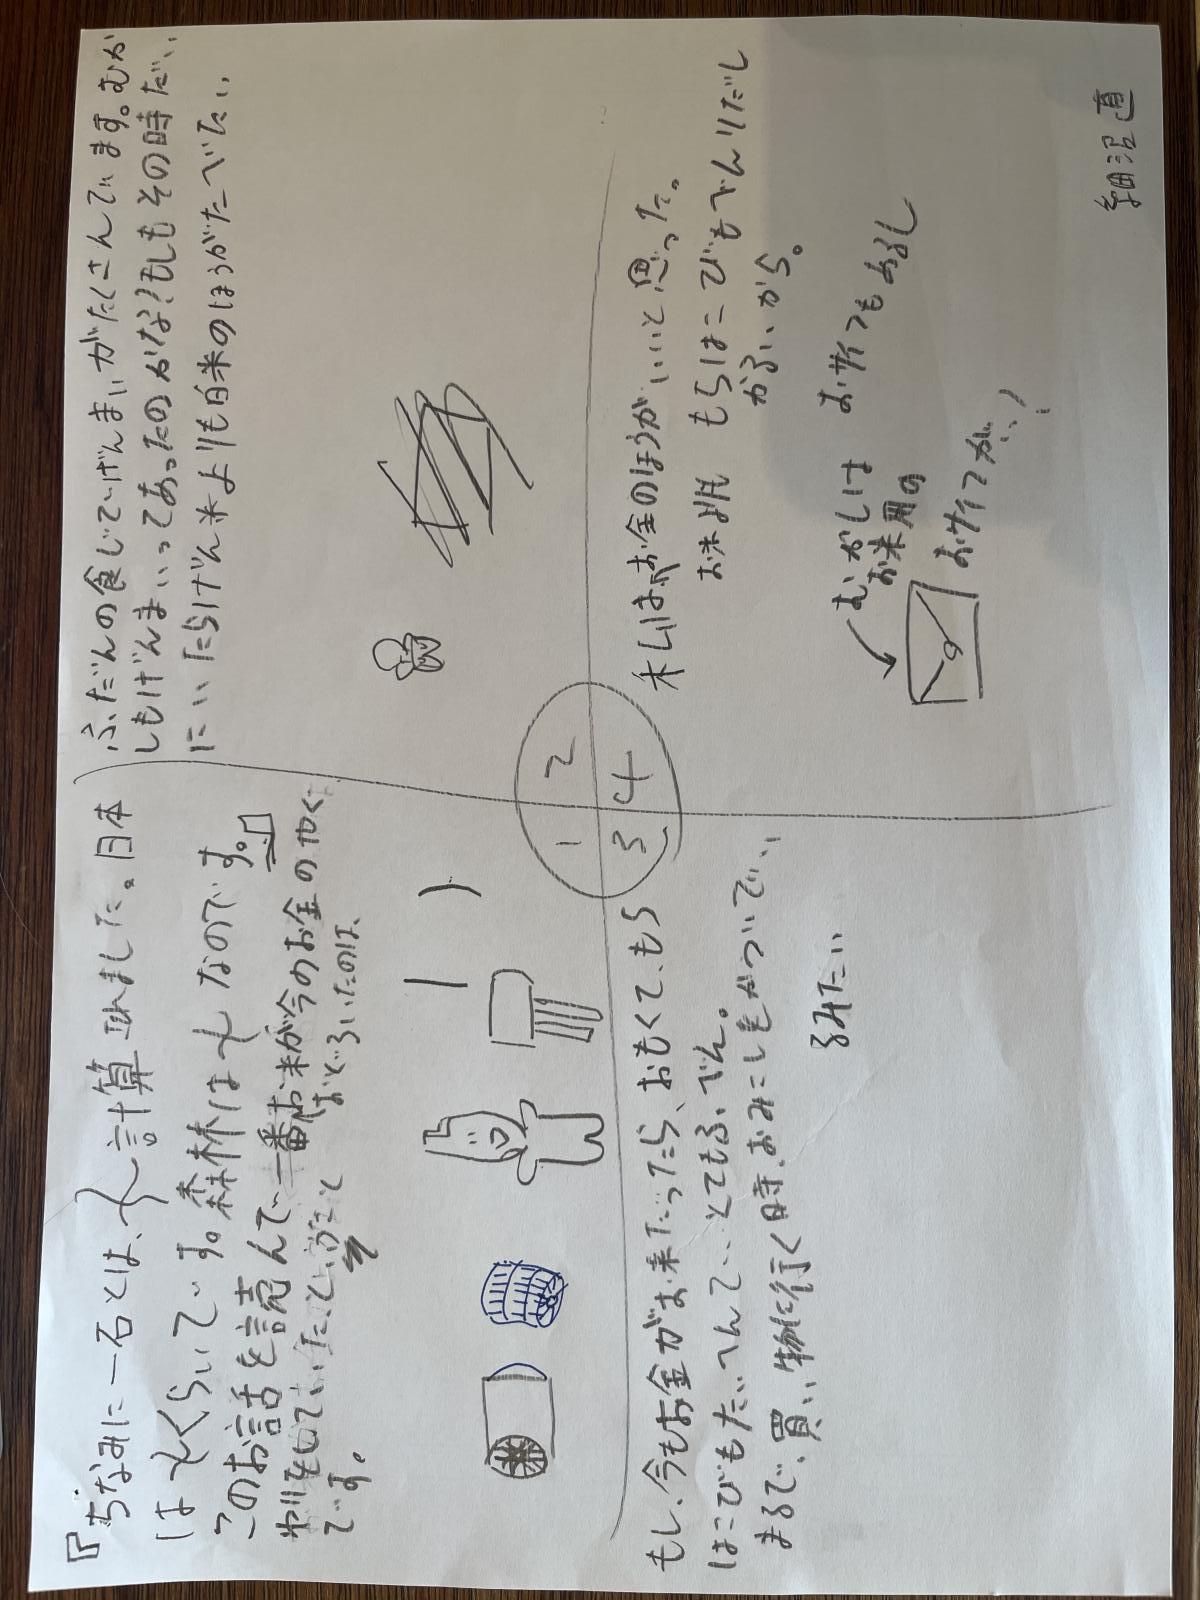 『ちなみに一石とは、
計算
しました。日本
は
くらいです。森林は
なのです。』
このお話を読んで一番お米が今のお金のやく
わりをしていたということ
おどろいたのは、
です。
1
2
3
4
ふだんの食じでげんまいがたくさんでます。むか
しもげんまいってあったのかな?もしもその時だい
にいたらげん米よりも白米のほうがたべたい
もし、今もお金がお米だったら、おもくて、もち
はこびもたいへんでとてもふべん。
まるで、買い物に行く時、おみこしをかついでい
るみたい
私はお金のほうがいいと思った。
お米よりもちはこびもべんりだし
かるいから。
おサイフもあるし
むかしは
お米用の
おサイフが!
細沼直